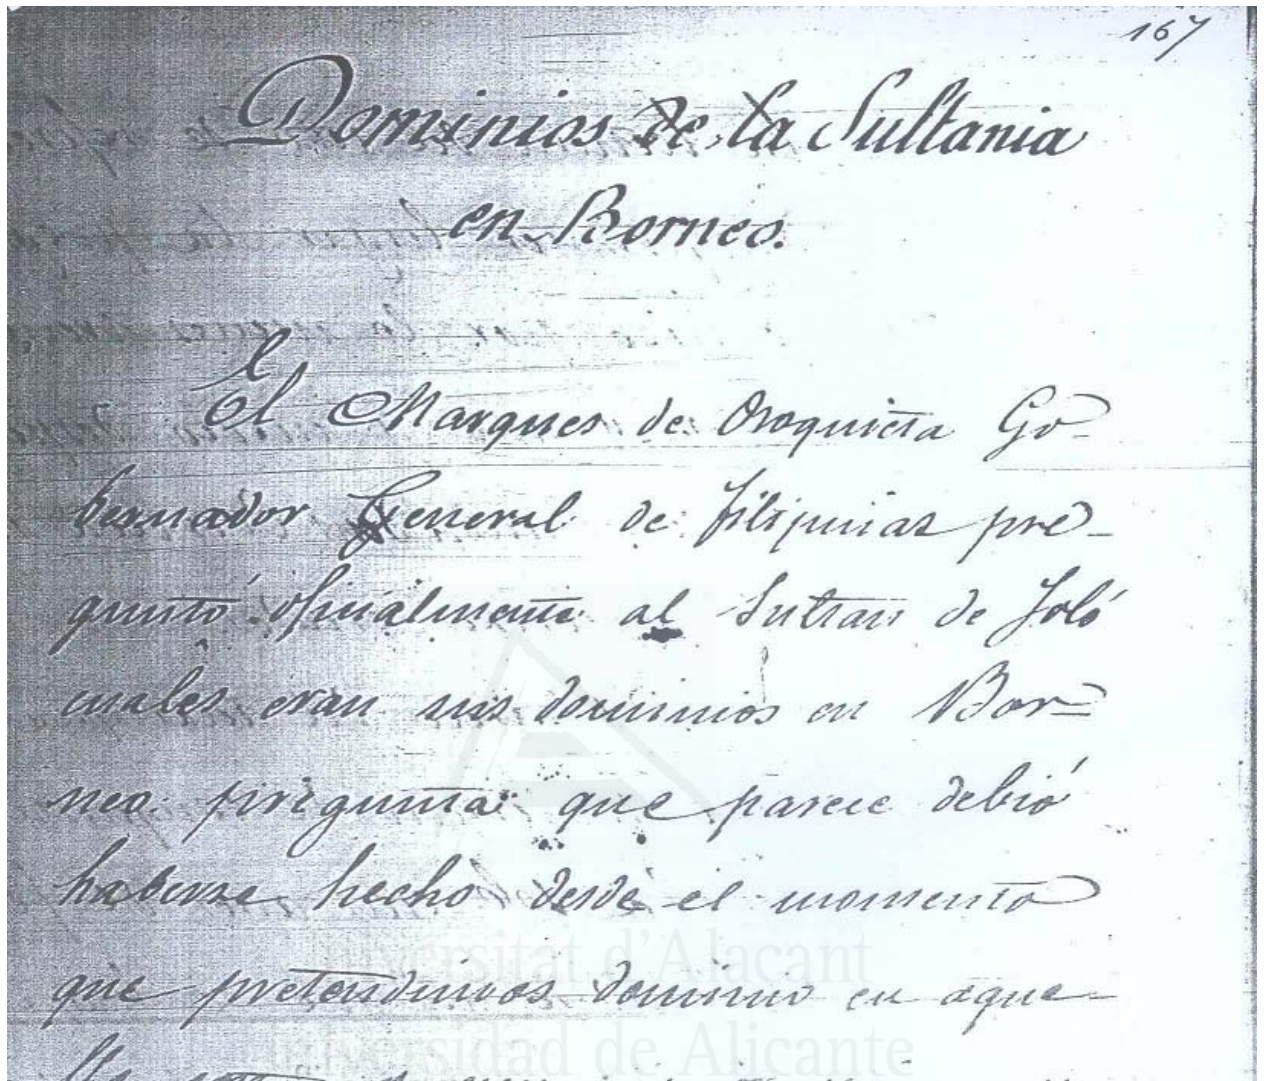 167
Dominios de la Sultania
en Borneo.
El Marques de Oroquieta Go-
bernador General de Filipinas pre-
guntó oficialmente al Sultan de Joló
cuales eran sus dominios en Bor=
neo pregunta que parece debió
haberse hecho desde el momento
que pretendimos dominio en aque-
lla
Universitat d'Alacant
Universidad de Alicante